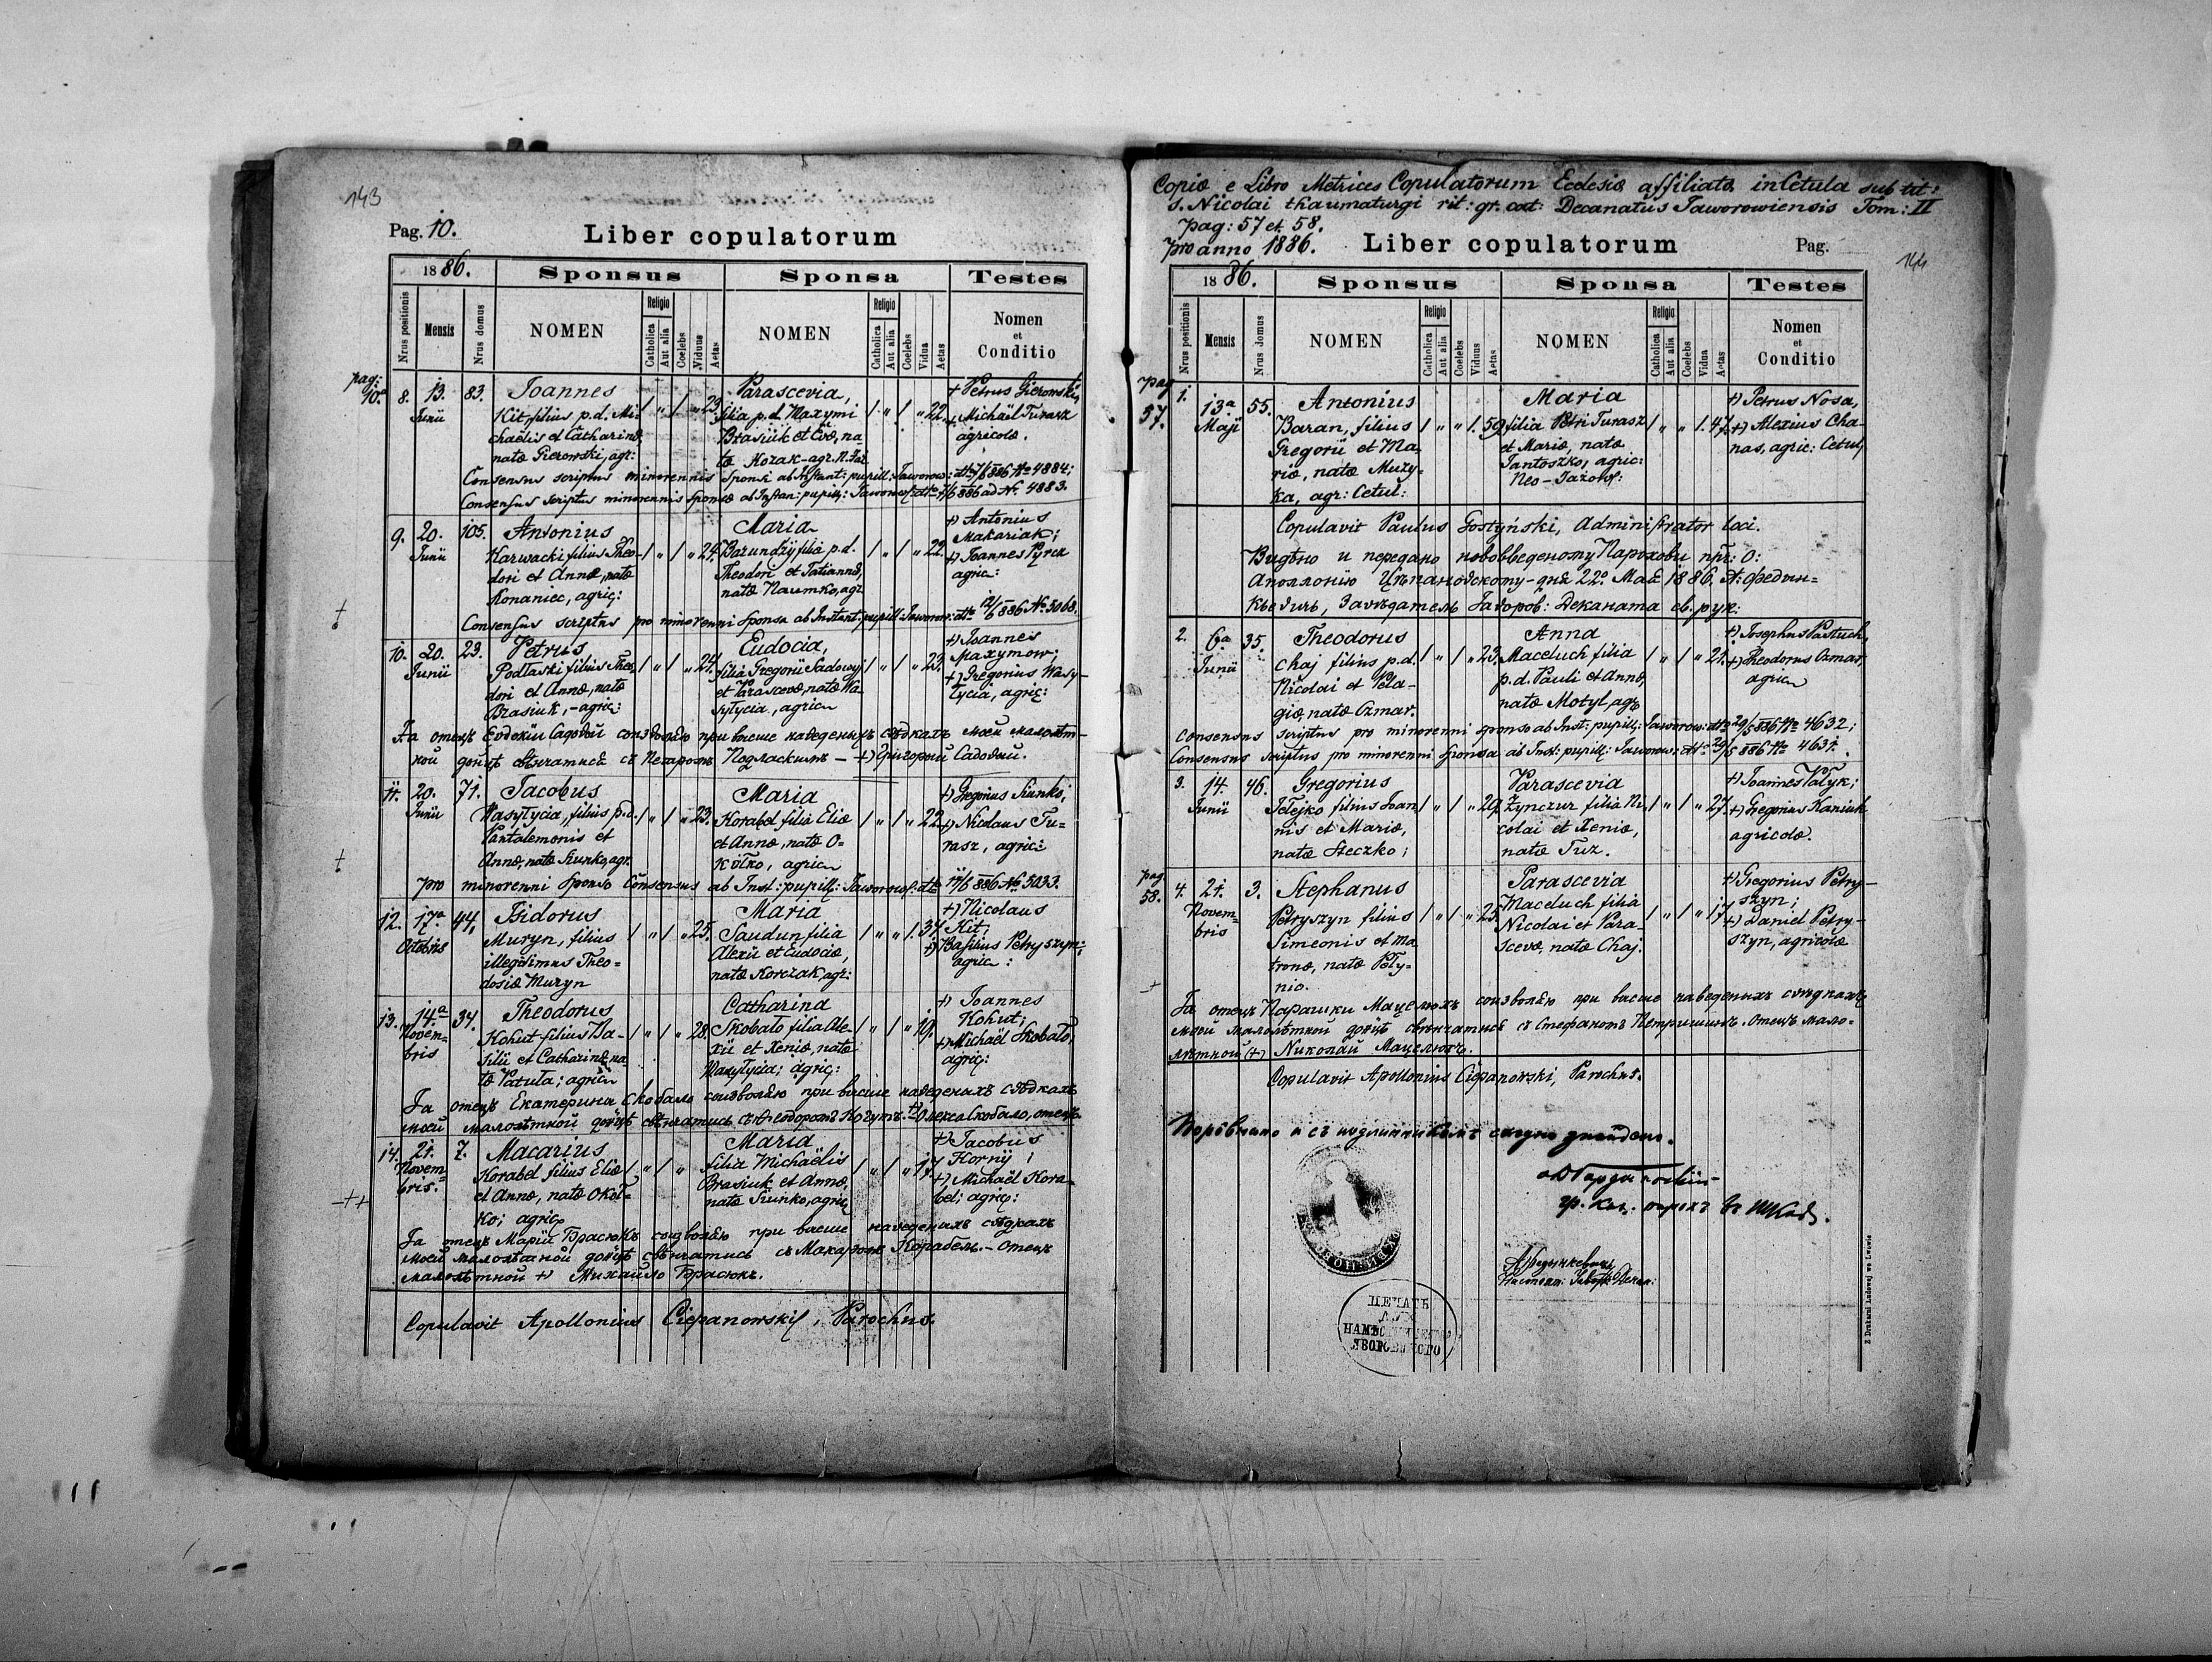 143
Pag. 10.
Liber copulatorum
1886.
Sponsus
Sponsa
Testes
Nrus positionis
Mensis
Nrus domus
NOMEN
Religio
Catholica
Aut alia
Coelebs
Viduus
Aetas
NOMEN
Religio
Catholica
Aut alia
Coelebs
Vidua
Aetas
Nomen
et
Conditio
pag:
10.a
8. 13. Junii 83.
Joannes
Kit, filius p.d. Mi-
chaëlis et Catharinæ,
natæ Gierowski, agr:
/ " / " 23.
Parascevia,
filia p.d. Maxymi
Brasiuk et Evæ, na-
tæ Kozak - agr. N. Jaz.
/ " / " 22.
+ Petrus Gierowski,
+ Michaël Turasz
agricolæ.
Consensus scriptus minorennis Sponsi ab Instant: pupill: Jaworow: dtto 7/6 886 No 4884;
Consensus scriptus minorennis Sponsæ ab Instan: pupill: Jaworow: dtto 7/6 886 ad No. 4883.
9. 20. Junii 105.
Antonius
Karwacki filius Theo-
dori et Annæ, natæ
Konaniec, agric:
/ " / " 24.
Maria
Barundzij filia p.d.
Theodori et Tatiannæ,
natæ Naumko, agr.
/ " / " 22.
+) Antonius
Makariak;
+) Joannes Pyrcz
agric:
Consensus scriptus pro minorenni Sponsa ab Instant: pupill: Jaworow: dtto 12/6 886 No 5068.
10. 20. Junii 23.
Petrus
Podłaski filius Theo-
dori et Annæ, natæ
Brasiuk, - agric:
/ " / " 24.
Eudocia,
filia Gregorii Sadowyj
et Parascevæ, natæ Wa-
sylycia, agric
/ " / " 23.
+) Joannes
Maxymow;
+) Gregorius Wasy-
lycia, agric:
Ja отецъ Евдокіи Садовой соизволяю при высше наведеныхъ свѣдкахъ моей малолѣт-
ной доньцѣ вѣнчатись съ Петромъ Подласкимъ - +) Григорій Садовый.
11. 20. Junii 71.
Jacobus
Wasylycia, filius p.d.
Pantalemonis et
Annæ, natæ Siunko, agr.
/ " / " 23.
Maria
Korabel filia Eliæ
et Annæ, natæ O-
kołko, agric
/ " / " 22.
+) Gregorius Siunko;
+) Nicolaus Tu-
rasz, agric:
pro minorenni Sponso Consensus ab Inst: pupill: Jaworow: dtto 11/6 886 No 5033.
12. 17.a Octobris 44.
Isidorus
Muryn, filius
illegitimus Theo-
dosiæ Muryn
/ " / " 25.
Maria
Saudun filia
Alexii et Eudociæ,
natæ Korczak, agr:
/ " " /. 34
+) Nicolaus
Kit;
+) Basilius Petryszyn;
agric:
13. 14.a Novem-
bris 34.
Theodorus
Kohut filius Ba-
silii et Catharinæ, na-
tæ Patuła; agric
/ " / " 28.
Catharina
Skobało filia Ale-
xii et Xeniæ, natæ
Wasylycia; agric:
/ " / " 19.
+) Joannes
Kohut;
+) Michaël Skobało,
agric:
Ja отецъ Екатерины Скобало соизволяю при высше наведеныхъ свѣдкахъ
моей малолѣтной доньцѣ вѣнчатись съ Ѳеодоромъ Когутъ. +) Олекса Скобало, отецъ.
14. 21. Novem-
bris. 7.
Macarius
Korabel filius Eliæ
et Annæ, natæ Okoł-
ko; agric
/ " / "
Maria
filia Michaëlis
Brasiuk et Annæ,
natæ Siunko, agric
/ " / " 17
+) Jacobus
Kornij;
+) Michaël Kora-
bel; agric:
Ja отецъ Маріи Брасюкъ соизволяю при высше наведеныхъ свѣдкахъ
моей малолѣтной доньцѣ вѣнчатись съ Макаромъ Корабель. - отецъ
малолѣтной +) Михайло Брасюкъ.
Copulavit Apollonius Ciepanowskij, Parochus.
Copia e Libro Metrices Copulatorum Ecclesiæ affiliatæ in Cetula sub tit:
S. Nicolai thaumaturgi rit: gr. cat: Decanatus Jaworowiensis Tom: II
pag: 57 et 58.
pro anno 1886.
Liber copulatorum
Pag.
144
1886.
Sponsus
Sponsa
Testes
Nrus positionis
Mensis
Nrus domus
NOMEN
Religio
Catholica
Aut alia
Coelebs
Viduus
Aetas
NOMEN
Religio
Catholica
Aut alia
Coelebs
Vidua
Aetas
Nomen
et
Conditio
pag
57.
1. 13.a Maji 55.
Antonius
Baran, filius
Gregorii et Ma-
riæ, natæ Muzy-
ka, agr: Cetul:
/ " " /. 59
Maria
filia Petri Turasz
et Mariæ, natæ
Jantoszko, agric:
Neo-Jazow:
/ " " /. 47.
+) Petrus Nosa,
+) Alexius Cha-
nas, agric: Cetul,
Copulavit Paulus Gostyński, Administrator loci.
Видѣно и передано нововведеному Парохови пр: О:
Аполлонію Цѣпановскому - дня 22о Мая 1886. А: Федин-
кѣвичъ, Завѣдатель Яворов: Деканата вл. рук:
2. 6.a Junii 35.
Theodorus
Chaj filius p.d.
Nicolai et Pela-
giæ, natæ Ozmar.
/ " / " 23.
Anna
Maceluch filia
p.d. Pauli et Annæ,
natæ Motyl, agr
/ " / " 21.
+) Josephus Pastuch,
+) Theodorus Ozmar,
agric
Consensus scriptus pro minorenni sponso ab Inst: pupill: Jaworow: dtto 29/5 886 No 4632;
Consensus scriptus pro minorenni Sponsa ab Inst: pupill: Jaworow: dtto 29/5 886 No 4631.
3. 14. Junii 46.
Gregorius
Telejko filius Joan-
nis et Mariæ,
natæ Steczko;
/ " / " 29.
Parascevia
Żynczur filia Ni-
colai et Xeniæ,
natæ Tuz.
/ " / " 27.
+) Joannes Pałyk;
+) Gregorius Kaniuk
agricolæ.
pag.
58.
4. 21. Novem-
bris 3.
Stephanus
Petryszyn filius
Simeonis et Ma-
tronæ, natæ Pety-
nio.
/ " / " 25.
Parascevia
Maceluch filia
Nicolai et Para-
scevæ, natæ Chaj.
/ " / " 17
+) Gregorius Petry-
szyn;
+) Daniel Petry-
szyn, agricolæ
Ja отецъ Парашки Мацелюхъ соизволяю при высше наведеныхъ свѣдкахъ
моей малолѣтной доньцѣ вѣнчатись съ Стефаномъ Петришинъ. Отецъ мало-
лѣтной (+) Николай Мацелюхъ.
Copulavit Apollonius Ciepanowski, Parochus.
гр. кат. парохъ
ПЕЧАТЬ
НАМѢС
ЯВОРОВСКОГО
Z Drukarni Ludowej we Lwowie